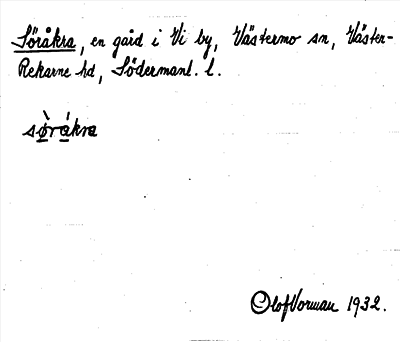 Söråkra, en gård i Vi by, Västermo sn, Väster-
Rekarne hd, Södermanl. l.
sø̀rákra
Olof Vorman 1932.